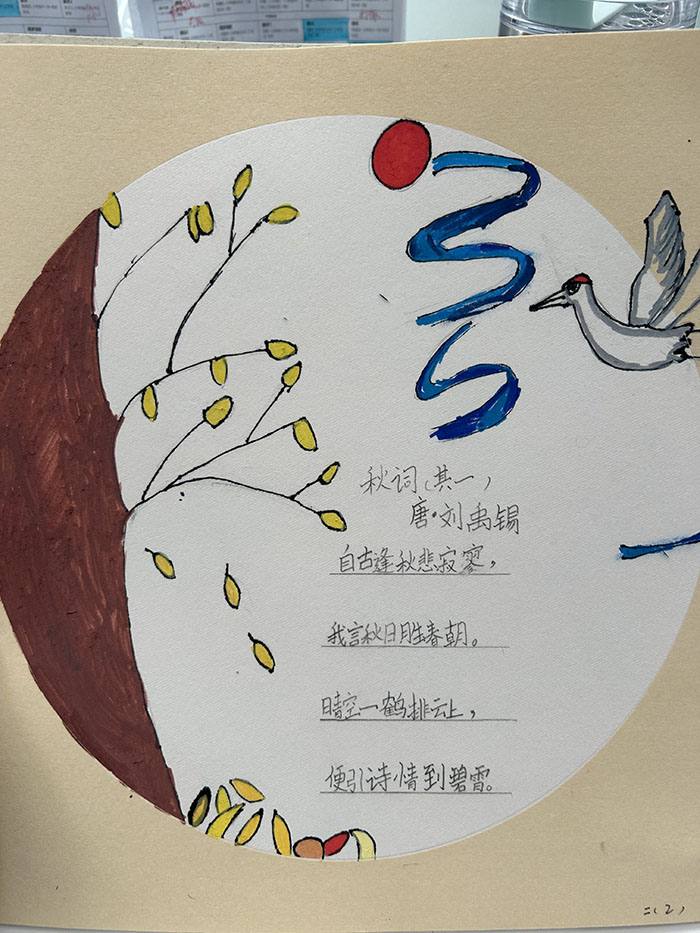 秋词(其一)
唐·刘禹锡
自古逢秋悲寂寥,
我言秋日胜春朝。
晴空一鹤排云上,
便引诗情到碧霄。
二(2)